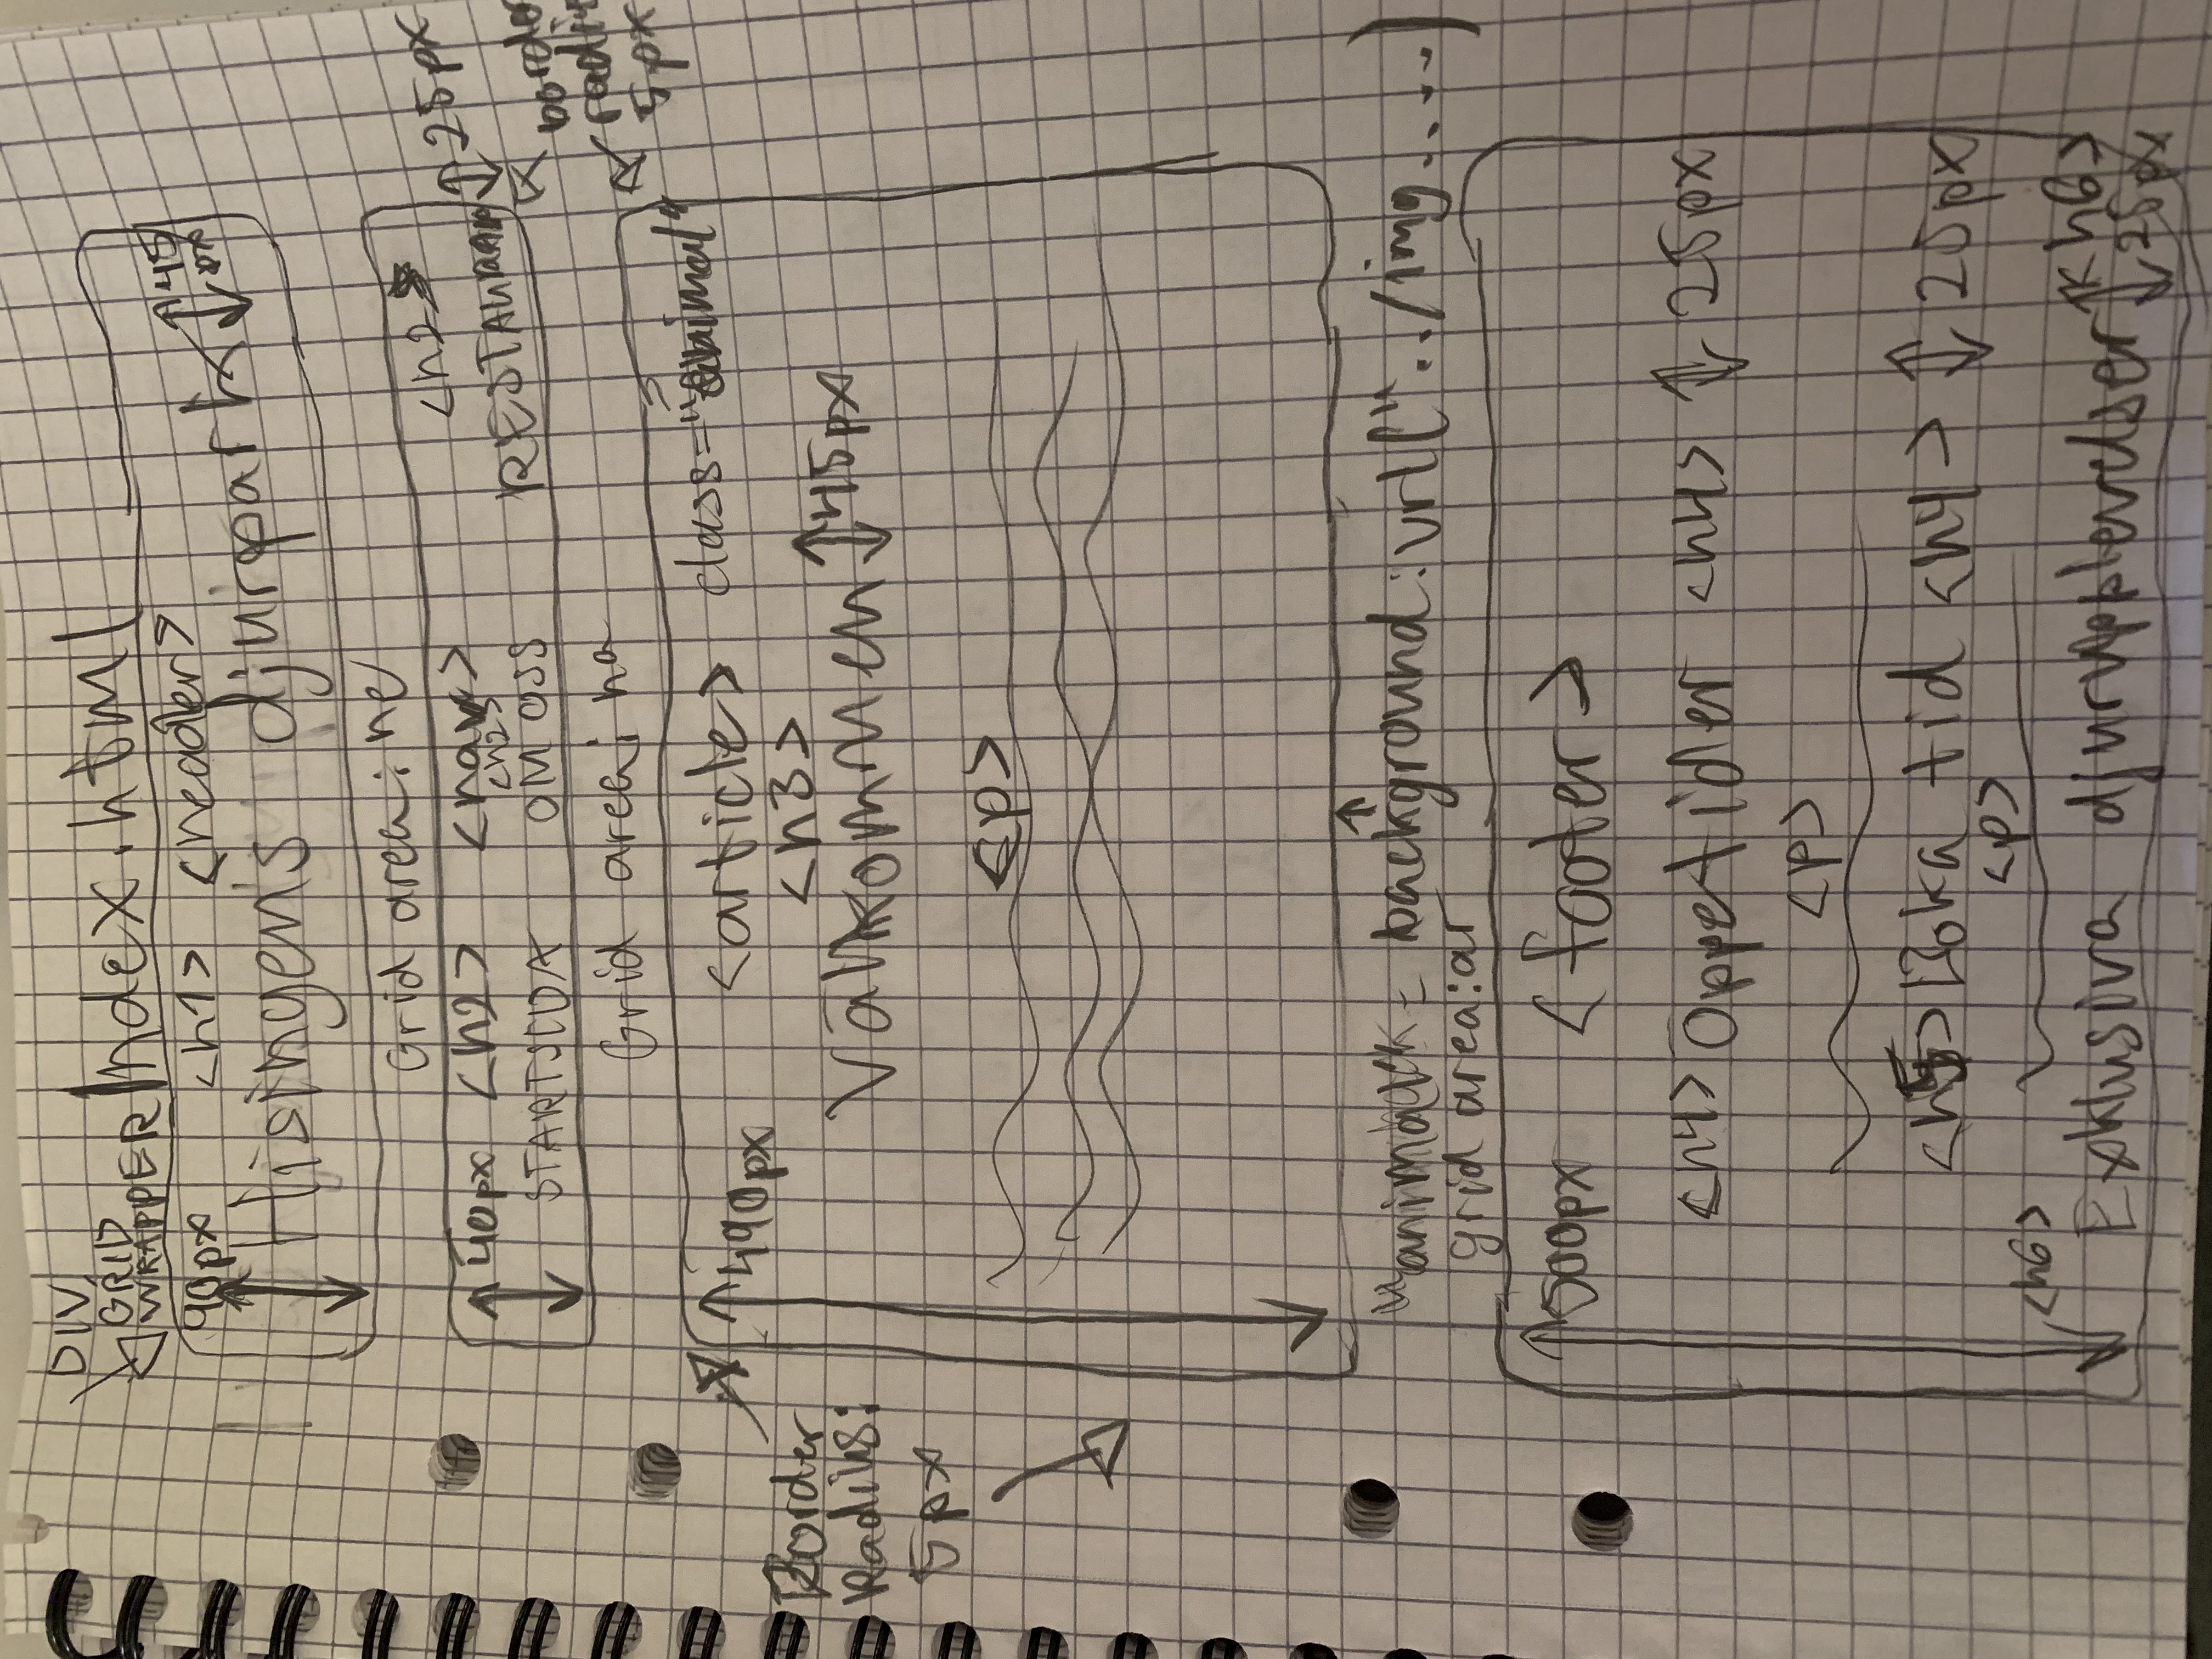 DIV
GRID
WRAPPER Index.html
90px <h1> <header> 45 px
Hisingens djurpark
Grid area: he
40px <h2> <nav> <h2>
<h2>
STARTSIDA OM OSS RESTAURANG 25px
Grid area: na
border
radius
5px
490px <article> class="animal"
<h3>
Välkommen 45px
Border
Radius:
5px
<p>
background: url("../img.....)
grid area: ar
500px <footer>
<h4> Öppetider <h4> 25px
<p>
<h5> Boka tid <h4> 25px
<p>
<h6>
Exklusiva djurupplevelser <h6>
25px